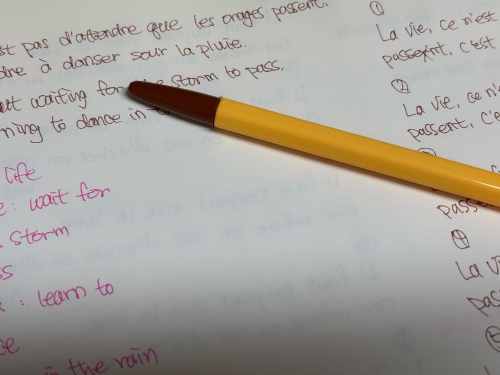 st pas d'attendre que les orages passent.
dre à danser sour la pluie.
ut waiting for the storm to pass.
ning to dance in
life
: wait for
storm
ss
: learn to
ce
in the rain
①
La vie, ce n'est
passent, c'est
②
La vie, ce n'e
passent, c'e
passe
④
La vi
passe
⑤